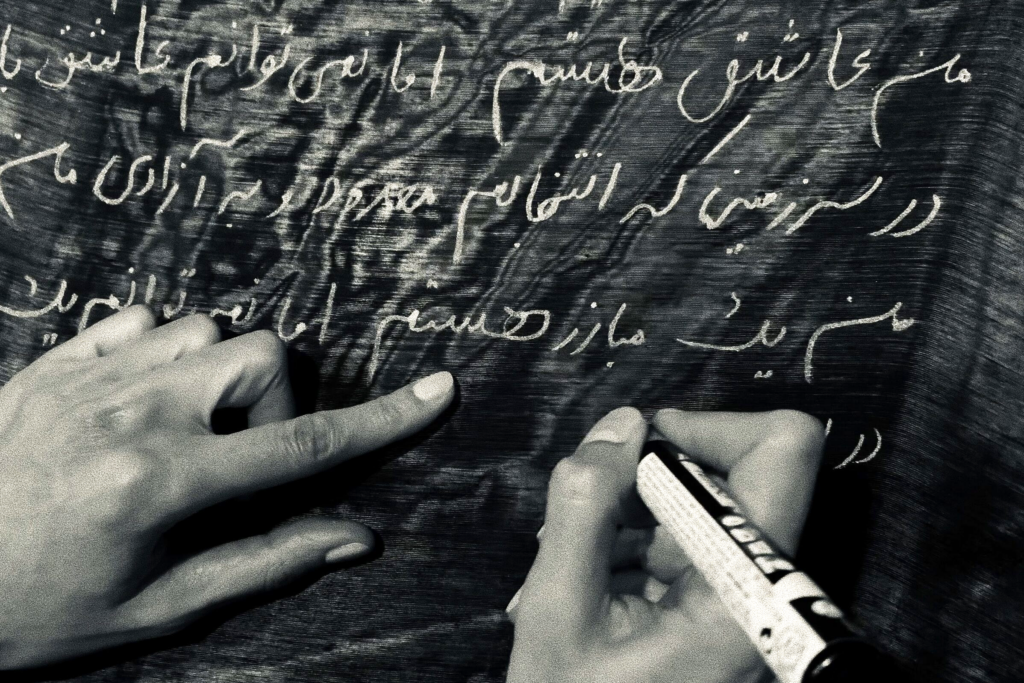 منم عاشق هستم اما نمی توانم عاشق با
در سرزمینی که انتخابم محدود و به آزادی
منم یک مبارز هستم اما نمی توانم یک
در